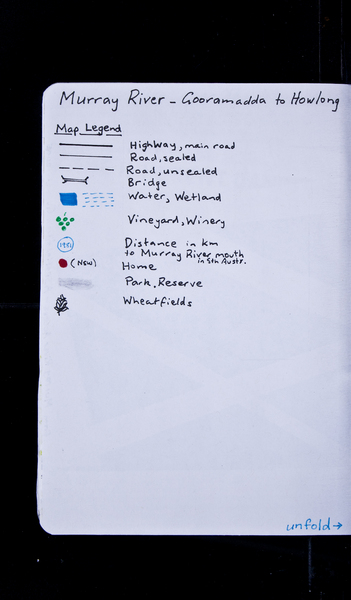 Murray River - Gooramadda to Howlong
Map Legend
Highway, main road
Road, sealed
Road, unsealed
Bridge
Water, Wetland
Vineyard, Winery
1986 Distance in km
to Murray River mouth
in Sth Austr.
(NSW) Home
Park, Reserve
Wheatfields
unfold→